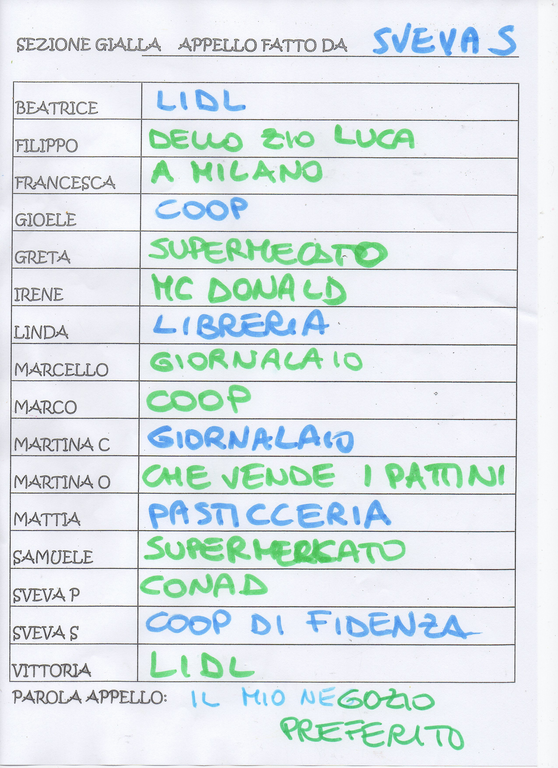 SEZIONE GIALLA APPELLO FATTO DA SVEVA S
BEATRICE LIDL
FILIPPO DELLO ZIO LUCA
FRANCESCA A MILANO
GIOELE COOP
GRETA SUPERMECATO
IRENE MC DONALD
LINDA LIBRERIA
MARCELLO GIORNALAIO
MARCO COOP
MARTINA C GIORNALAIO
MARTINA O CHE VENDE I PATTINI
MATTIA PASTICCERIA
SAMUELE SUPERMERKATO
SVEVA P CONAD
SVEVA S COOP DI FIDENZA
VITTORIA LIDL
PAROLA APPELLO: IL MIO NEGOZIO
PREFERITO